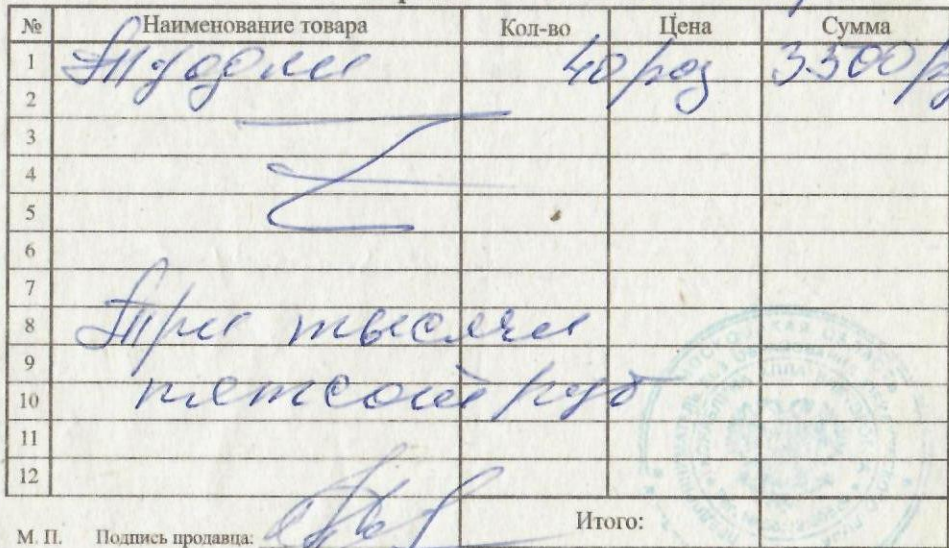 № Наименование товара Кол-во Цена Сумма
1 Туфли 40 раз 3500 р
2
3
4
5
6
7
8 Три тысячи
9
10 пятсот руб
11
12
Итого:
М. П. Подпись продавца: